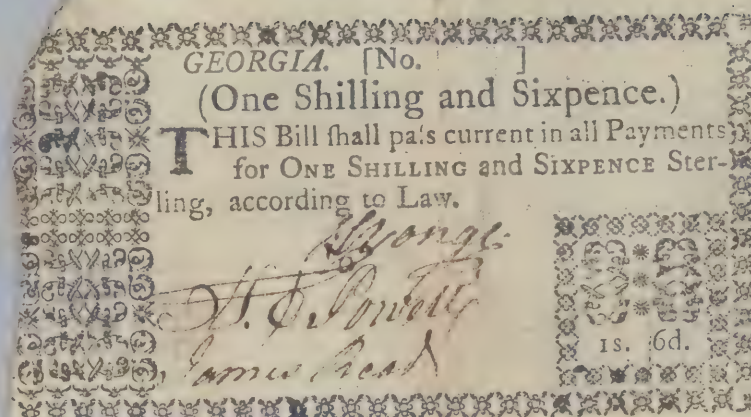 GEORGIA. [No. ]
(One Shilling and Sixpence.)
THIS Bill ſhall paſs current in all Payments
for ONE SHILLING and SIXPENCE Ster-
ling, according to Law.
Powell
James Read
1s. 6d.